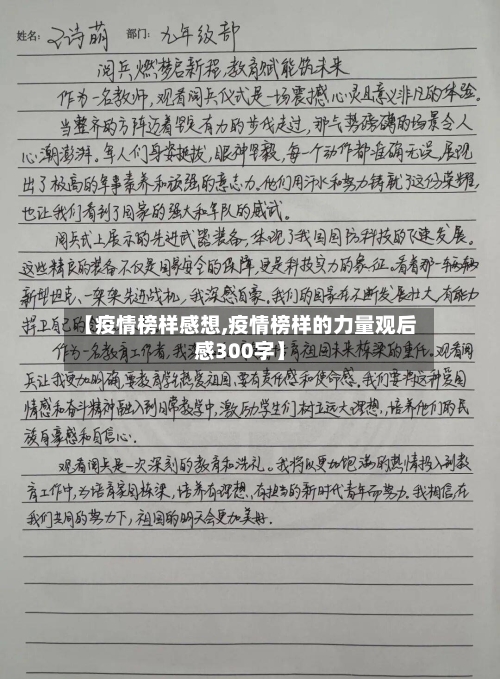 姓名: 诗萌 部门: 九年级部
阅兵燃梦启新程,教育赋能筑未来
作为一名教师,观看阅兵仪式是一场震撼心灵且意义非凡的体验。
当整齐的方阵迈着坚定有力的步伐走过,那气势磅礴的场景令人
心潮澎湃。军人们身姿挺拔,眼神坚毅,每一个动作都准确无误,展现
出了极高的军事素养和顽强的意志力。他们用汗水和努力铸就了这份荣耀,
也让我们看到了国家的强大和军队的威武。
阅兵式上展示的先进武器装备,体现了我国国防科技的飞速发展。
这些精良的装备不仅是国家安全的保障,更是科技实力的象征。看着那一辆辆
新型坦克、一架架先进战机,我深感自豪,我们的国家在不断发展壮大,有能力
捍卫自己的
【疫情榜样感想,疫情榜样的力量观后
感300字】
作为一名教育工作者,我深 育祖国未来栋梁的重任。观看阅
兵让我更加明确,要教育学生热爱祖国,要有责任感和使命感。我们要将这种爱国
情感和奋斗精神融入到日常教学中,激励学生们树立远大理想,培养他们的民
族自豪感和自信心。
观看阅兵是一次深刻的教育和洗礼。我将以更加饱满的热情投入到教
育工作中,为培育家国栋梁,培养有理想、有担当的新时代青年而努力。我相信,在
我们共同的努力下,祖国的明天会更加美好.